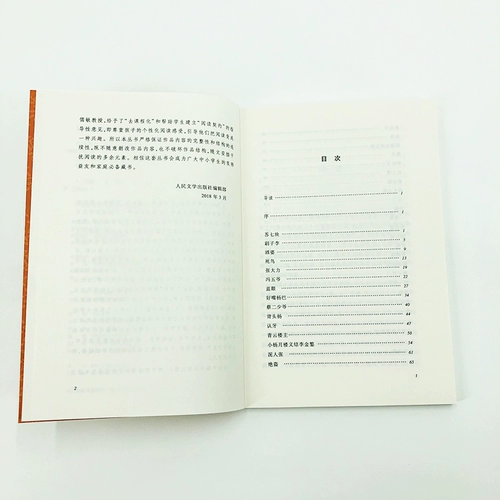 儒敏教授,给予了“去课程化”和帮给学生建立“阅读契约”的指
导性意见,即尊重孩子的个性化阅读感受,引导他们把阅读变成
一种兴趣。所以本丛书严格保证作品内容的完整性和结构的连
续性,既不随意删改作品内容,也不破坏作品结构,随文安插干
扰阅读的多余元素。相信这套丛书会成为广大中小学生的良师
益友和家庭必备藏书。
人民文学出版社编辑部
2018 年 3 月
2
目 次
导读 1
序 1
苏七块 1
刷子李 5
酒婆 9
死鸟 13
张大力 19
冯五爷 22
蓝眼 27
好嘴杨巴 34
蔡二少爷 40
背头杨 44
认牙 47
青云楼主 50
小杨月楼义结李金鳌 54
泥人张 61
绝盗 65
1